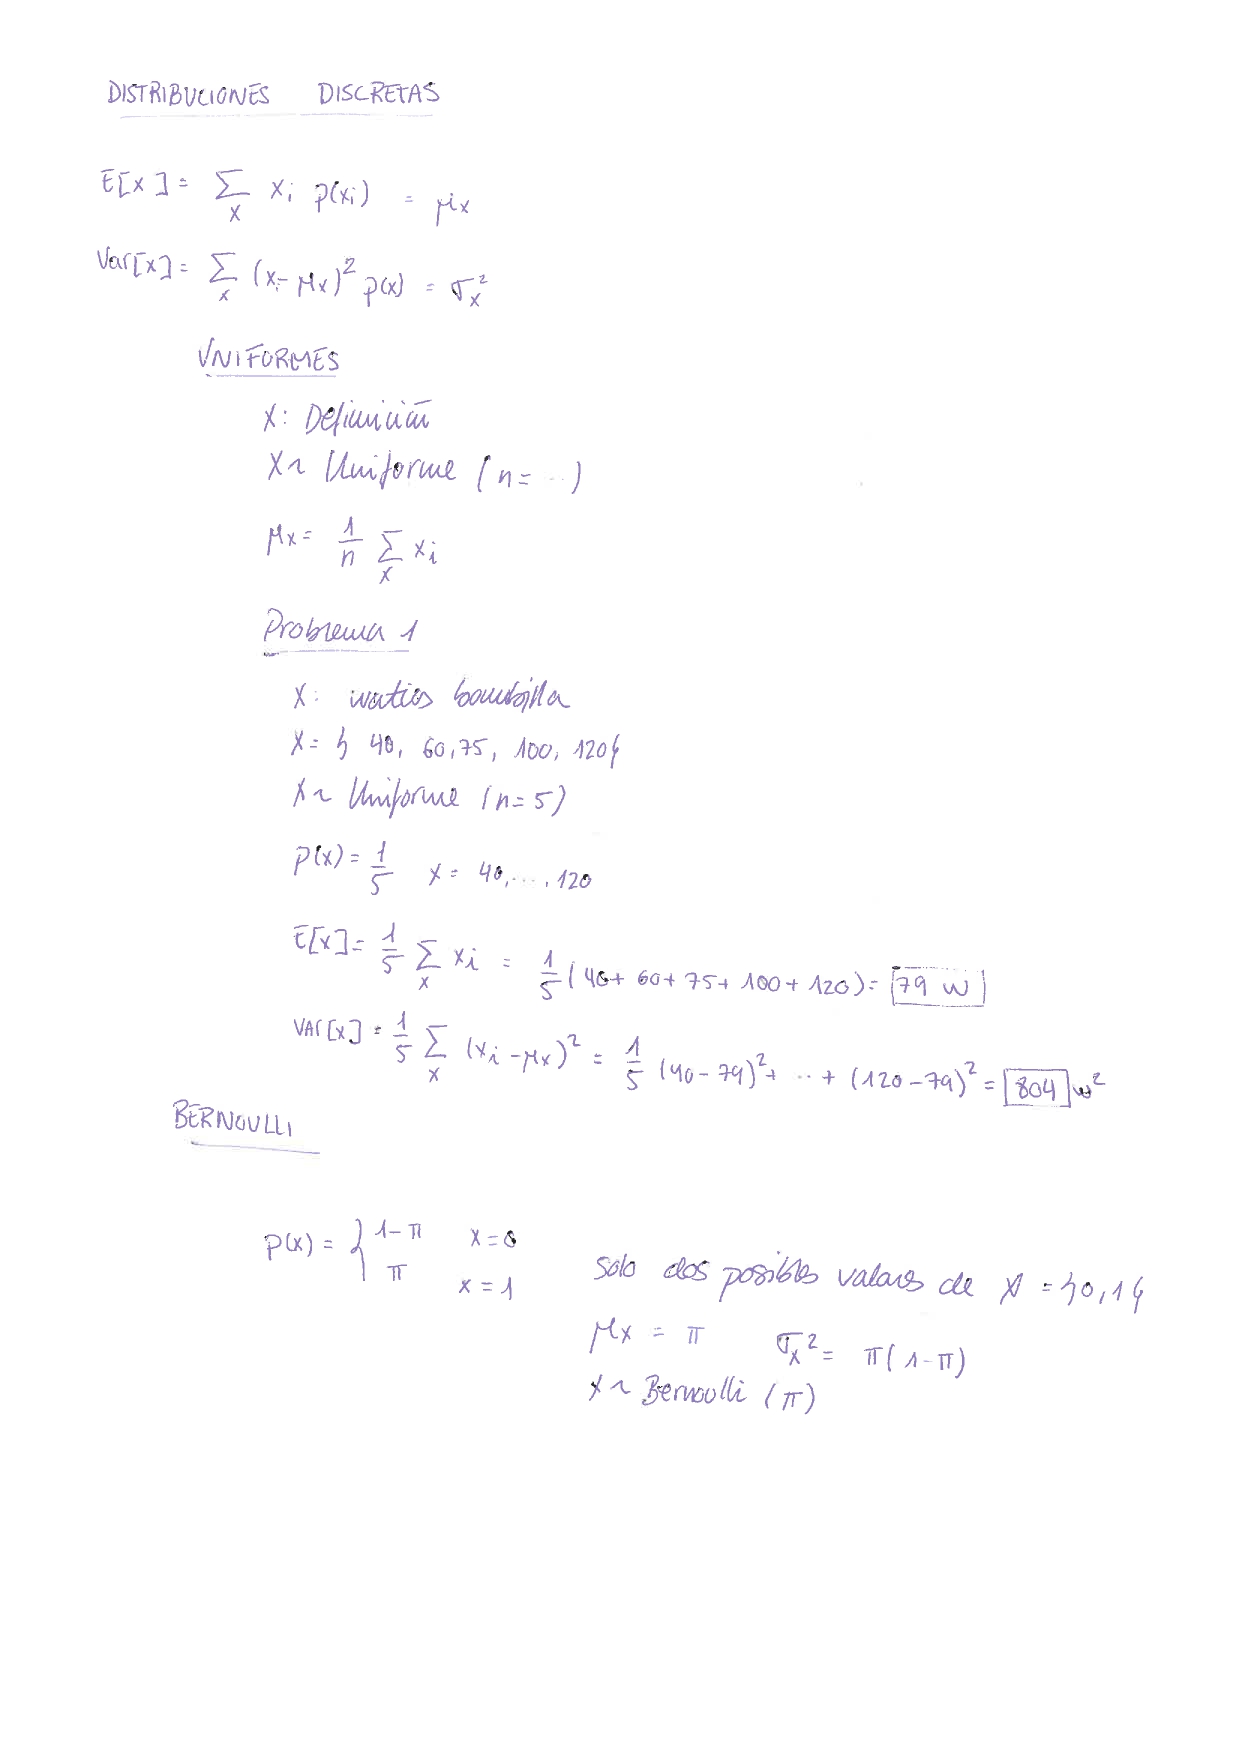 DISTRIBUCIONES DISCRETAS
E[x] = Σ_x x_i p(x_i) = μ_x
Var[x] = Σ_x (x_i - μ_x)² p(x) = σ_x²
UNIFORMES
X: Definición
X ~ Uniforme (n = ...)
μ_x = 1/n Σ_x x_i
Problema 1
X: watios bombilla
X = { 40, 60, 75, 100, 120 }
X ~ Uniforme (n = 5)
P(x) = 1/5 x = 40, ..., 120
E[x] = 1/5 Σ_x x_i = 1/5 (40 + 60 + 75 + 100 + 120) = 79 w
VAR[x] = 1/5 Σ_x (x_i - μ_x)² = 1/5 (40 - 79)² + ... + (120 - 79)² = 804 w²
BERNOULLI
P(x) = { 1 - π x = 0
π x = 1
Solo dos posibles valores de X = {0, 1}
μ_x = π σ_x² = π(1 - π)
X ~ Bernoulli (π)